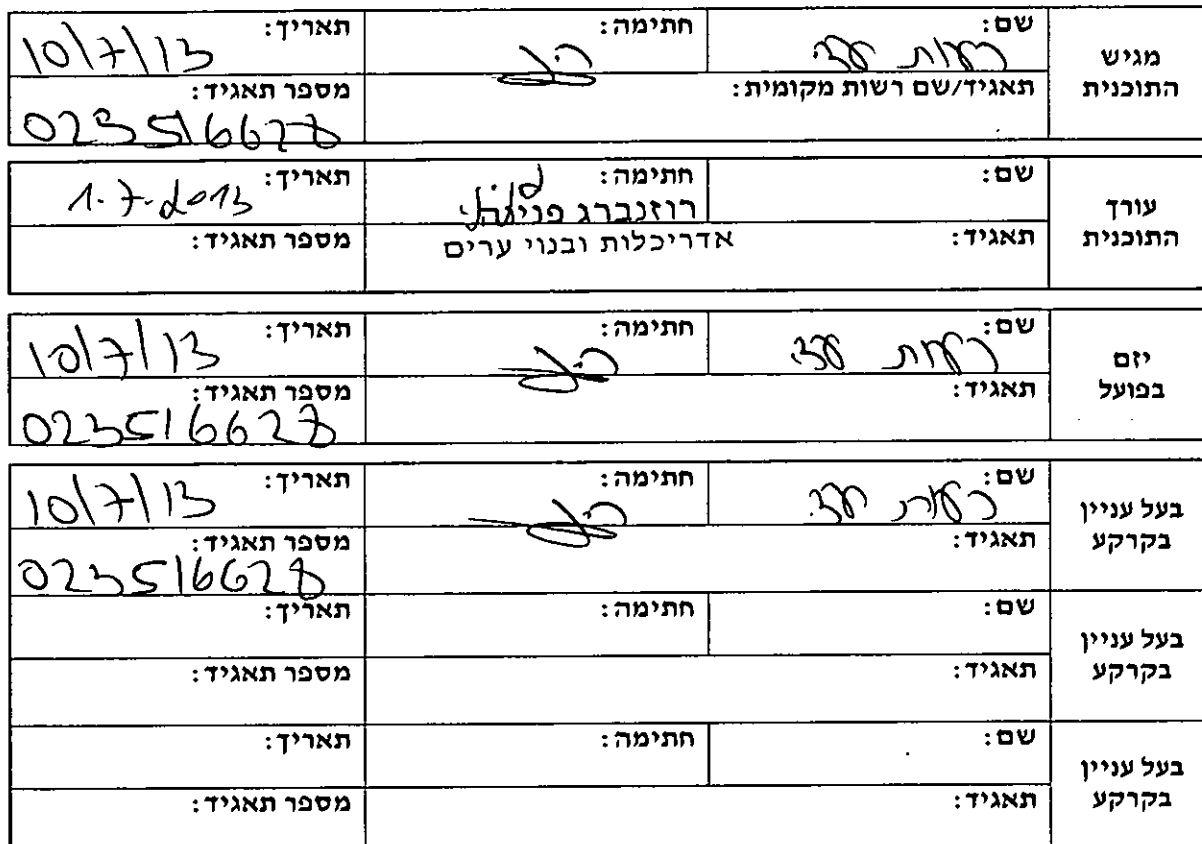 מגיש התוכנית
שם: רעות עדי
חתימה:
תאריך: 10/7/13
תאגיד/שם רשות מקומית:
מספר תאגיד: 023516628
עורך התוכנית
שם:
חתימה: רוזנברג
אדריכלות ובנוי ערים
תאריך: 1.7.2013
תאגיד:
מספר תאגיד:
יזם בפועל
שם: רעות עדי
חתימה:
תאריך: 10/7/13
תאגיד:
מספר תאגיד: 023516628
בעל עניין בקרקע
שם: רעות עדי
חתימה:
תאריך: 10/7/13
תאגיד:
מספר תאגיד: 023516628
בעל עניין בקרקע
שם:
חתימה:
תאריך:
תאגיד:
מספר תאגיד:
בעל עניין בקרקע
שם:
חתימה:
תאריך:
תאגיד:
מספר תאגיד: